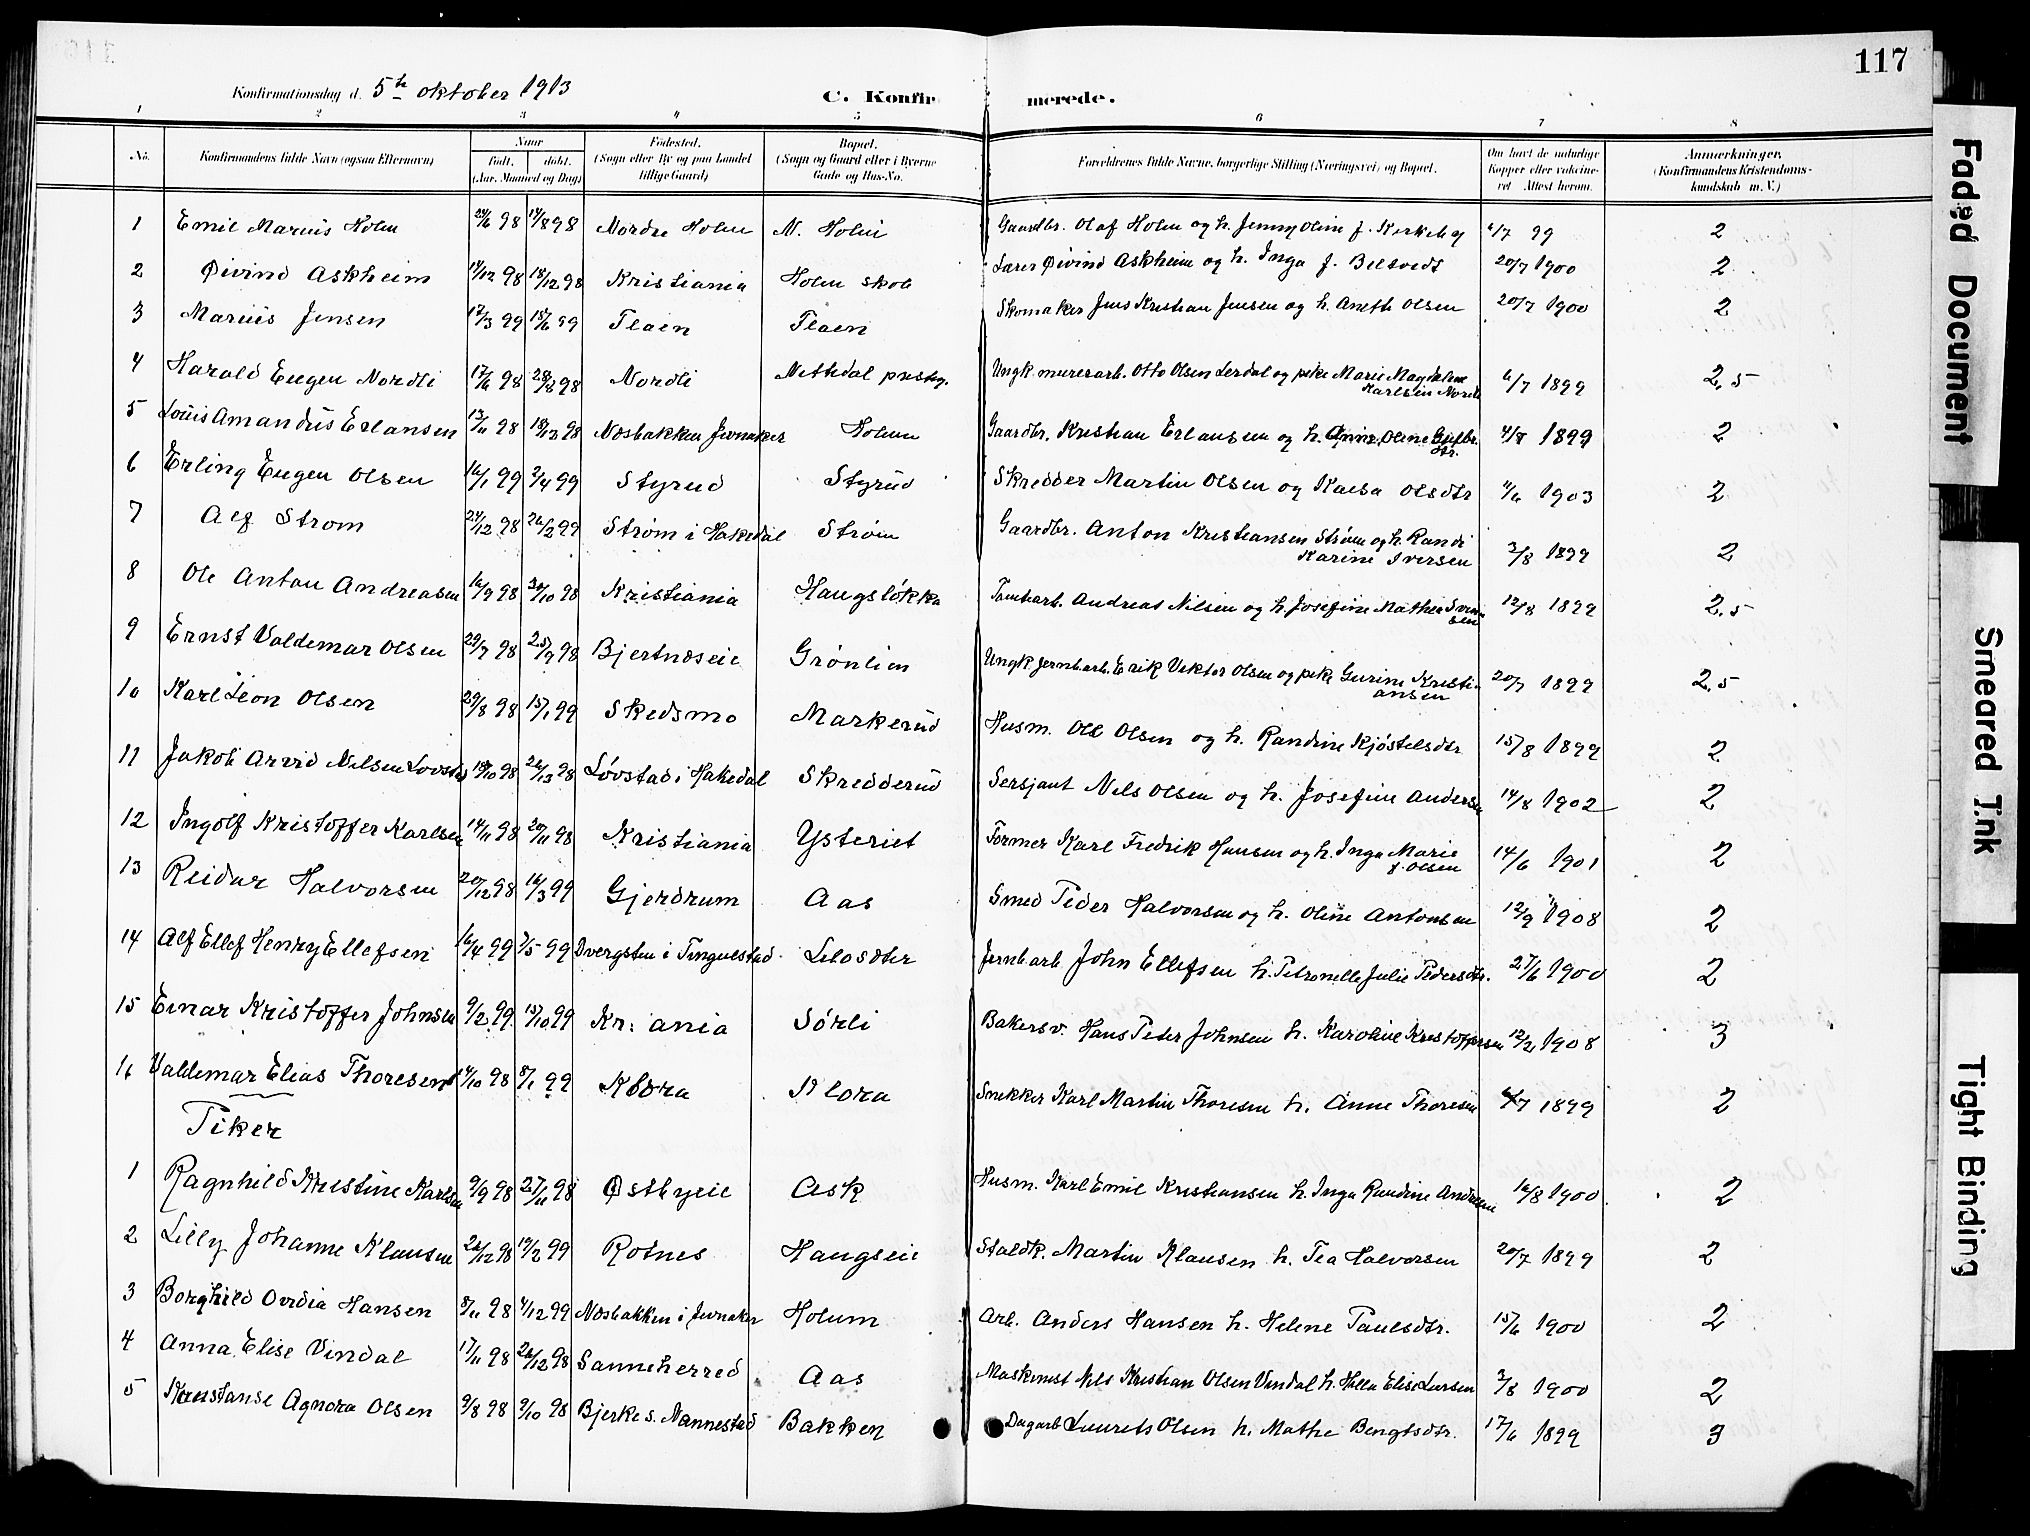 117
Konfirmationsdag d. 5te oktober 1913
C. Konfirmerede.
1 2 3 4 5 6 7 8
No. Konfirmandens fulde Navn (ogsaa Efternavn) Naar født. døbt. (Aar. Maaned og Dag) Fødested. (Sogn eller By og paa Landet tillige Gaard) Bopæl. (Sogn og Gaard eller i Byerne Gade og Hus-No. Forældrenes fulde Navne, borgerlige Stilling (Næringsvei) og Bopæl. Om havt de naturlige Kopper eller vaccineret Attest herom. Anmærkninger. (Konfirmandens Kristendomskundskab m. V.)
1 Emil Marius Holm 98 14/8 98 Nordre Holm N. Holm Gaardbr. Olaf Holm og h. Jenny Oline f. Kirkeby 99 2
2 Øivind Askheim 14/12 98 18/12 98 Kristiania Holm skole Lærer Øivind Askheim og h. Inga f. Beltvedt 20/7 1900 2
3 Marius Jensen 12/3 99 15/6 99 Flaen Flaen Skomaker Jens Kristian Jensen og h. Aneth Olsen 20/7 1900 2
4 Harald Eugen Nordli 17/6 98 28/8 98 Nordli Nittedal prestg. Ungk. murerarb. Otto Olsen Lerdal og pike Marie Magdalene Karlsen Nordli 6/7 1899 2,5
5 Louis Amandus Erlansen 13/11 98 18/12 98 Næsbakken Jevnaker Holum Gaardbr. Kristian Erlansen og h. Anne Oline Gulbr. dtr. 4/8 1899 2
6 Erling Eugen Olsen 16/1 99 2/4 99 Styrud Styrud Skredder Martin Olsen og Kaisa Olsdtr 11/6 1903 2
7 Alf Strøm 24/12 98 26/2 99 Strøm i Hakedal Strøm Gaardbr. Anton Kristiansen Strøm og h. Randi Karine Iversen 3/8 1899 2
8 Ole Anton Andreasen 16/9 98 30/10 98 Kristiania Haugsløkka Tømbarb. Andreas Nilsen og h. Josefine Mathea Svensen 12/8 1899 2,5
9 Ernst Valdemar Olsen 29/7 98 25/9 98 Bjertnæseie Grønlien Ungk. jernbarb. Erik Vektor Olsen og pike Gurine Kristiansen 20/7 1899 2,5
10 Karl Leon Olsen 29/8 98 15/1 99 Skedsmo Markerud Husm. Ole Olsen og h. Randine Kjøstelsdtr 15/8 1899 2
11 Jakob Arvid Nilsen Lovstad 18/10 98 26/12 98 Løvstad i Hakedal Skredderud Sersjant Nils Olsen og h. Josefine Andersen 14/8 1902 2
12 Ingolf Kristoffer Karlsen 14/11 98 20/11 98 Kristiania Ysteriet Former Karl Fredrik Hansen og h. Inga Marie f. Olsen 14/6 1901 2
13 Reidar Halvorsen 20/12 98 16/3 99 Gjerdrum Aas Smed Peder Halvorsen og h. Oline Antonsen 12/9 1908 2
14 Alf Ellef Henry Ellefsen 16/4 99 7/5 99 Dvergsten i Tingelstad Lilosæter Jernbarb John Ellefsen h. Petronelle Julie Pedersdtr. 27/6 1900 2
15 Einar Kristoffer Johnsen 9/2 99 15/10 99 Kr:ania Sørli Bakersv. Hans Peder Johnsen h. Karoline Kristoffersen 12/2 1908 3
16 Valdemar Elias Thoresen 14/10 98 8/1 99 Klora Klora Snekker Karl Martin Thoresen h. Anne Thoresen 1899 2
Piker
1 Ragnhild Kristine Karlsen 9/9 98 27/11 98 Østbyeie Ask Husm. Karl Emil Kristiansen h. Inga Randine Andersen 16/8 1900 2
2 Lilly Johanne Klausen 26/12 98 19/2 99 Rotnes Haugseie Staldk. Martin Klausen h. Tea Halvorsen 20/7 1899 2
3 Borghild Ovidia Hansen 8/11 98 4/12 99 Næsbakken i Jevnaker Holum Arb. Anders Hansen h. Helene Paulsdtr. 15/6 1900 2
4 Anna Elise Vindal 17/11 98 26/12 98 Sanneherred Aas Maskinist Nils Kristian Olsen Vindal h. Hilla Elise Larsen 3/8 1900 2
5 Konstanse Agnora Olsen 9/8 98 9/10 98 Bjerke s. Nannestad Bakken Dagarb Laurets Olsen h. Mathe Bengtsdtr. 17/6 1899 3
Faded Document
Smeared Ink
Tight Binding